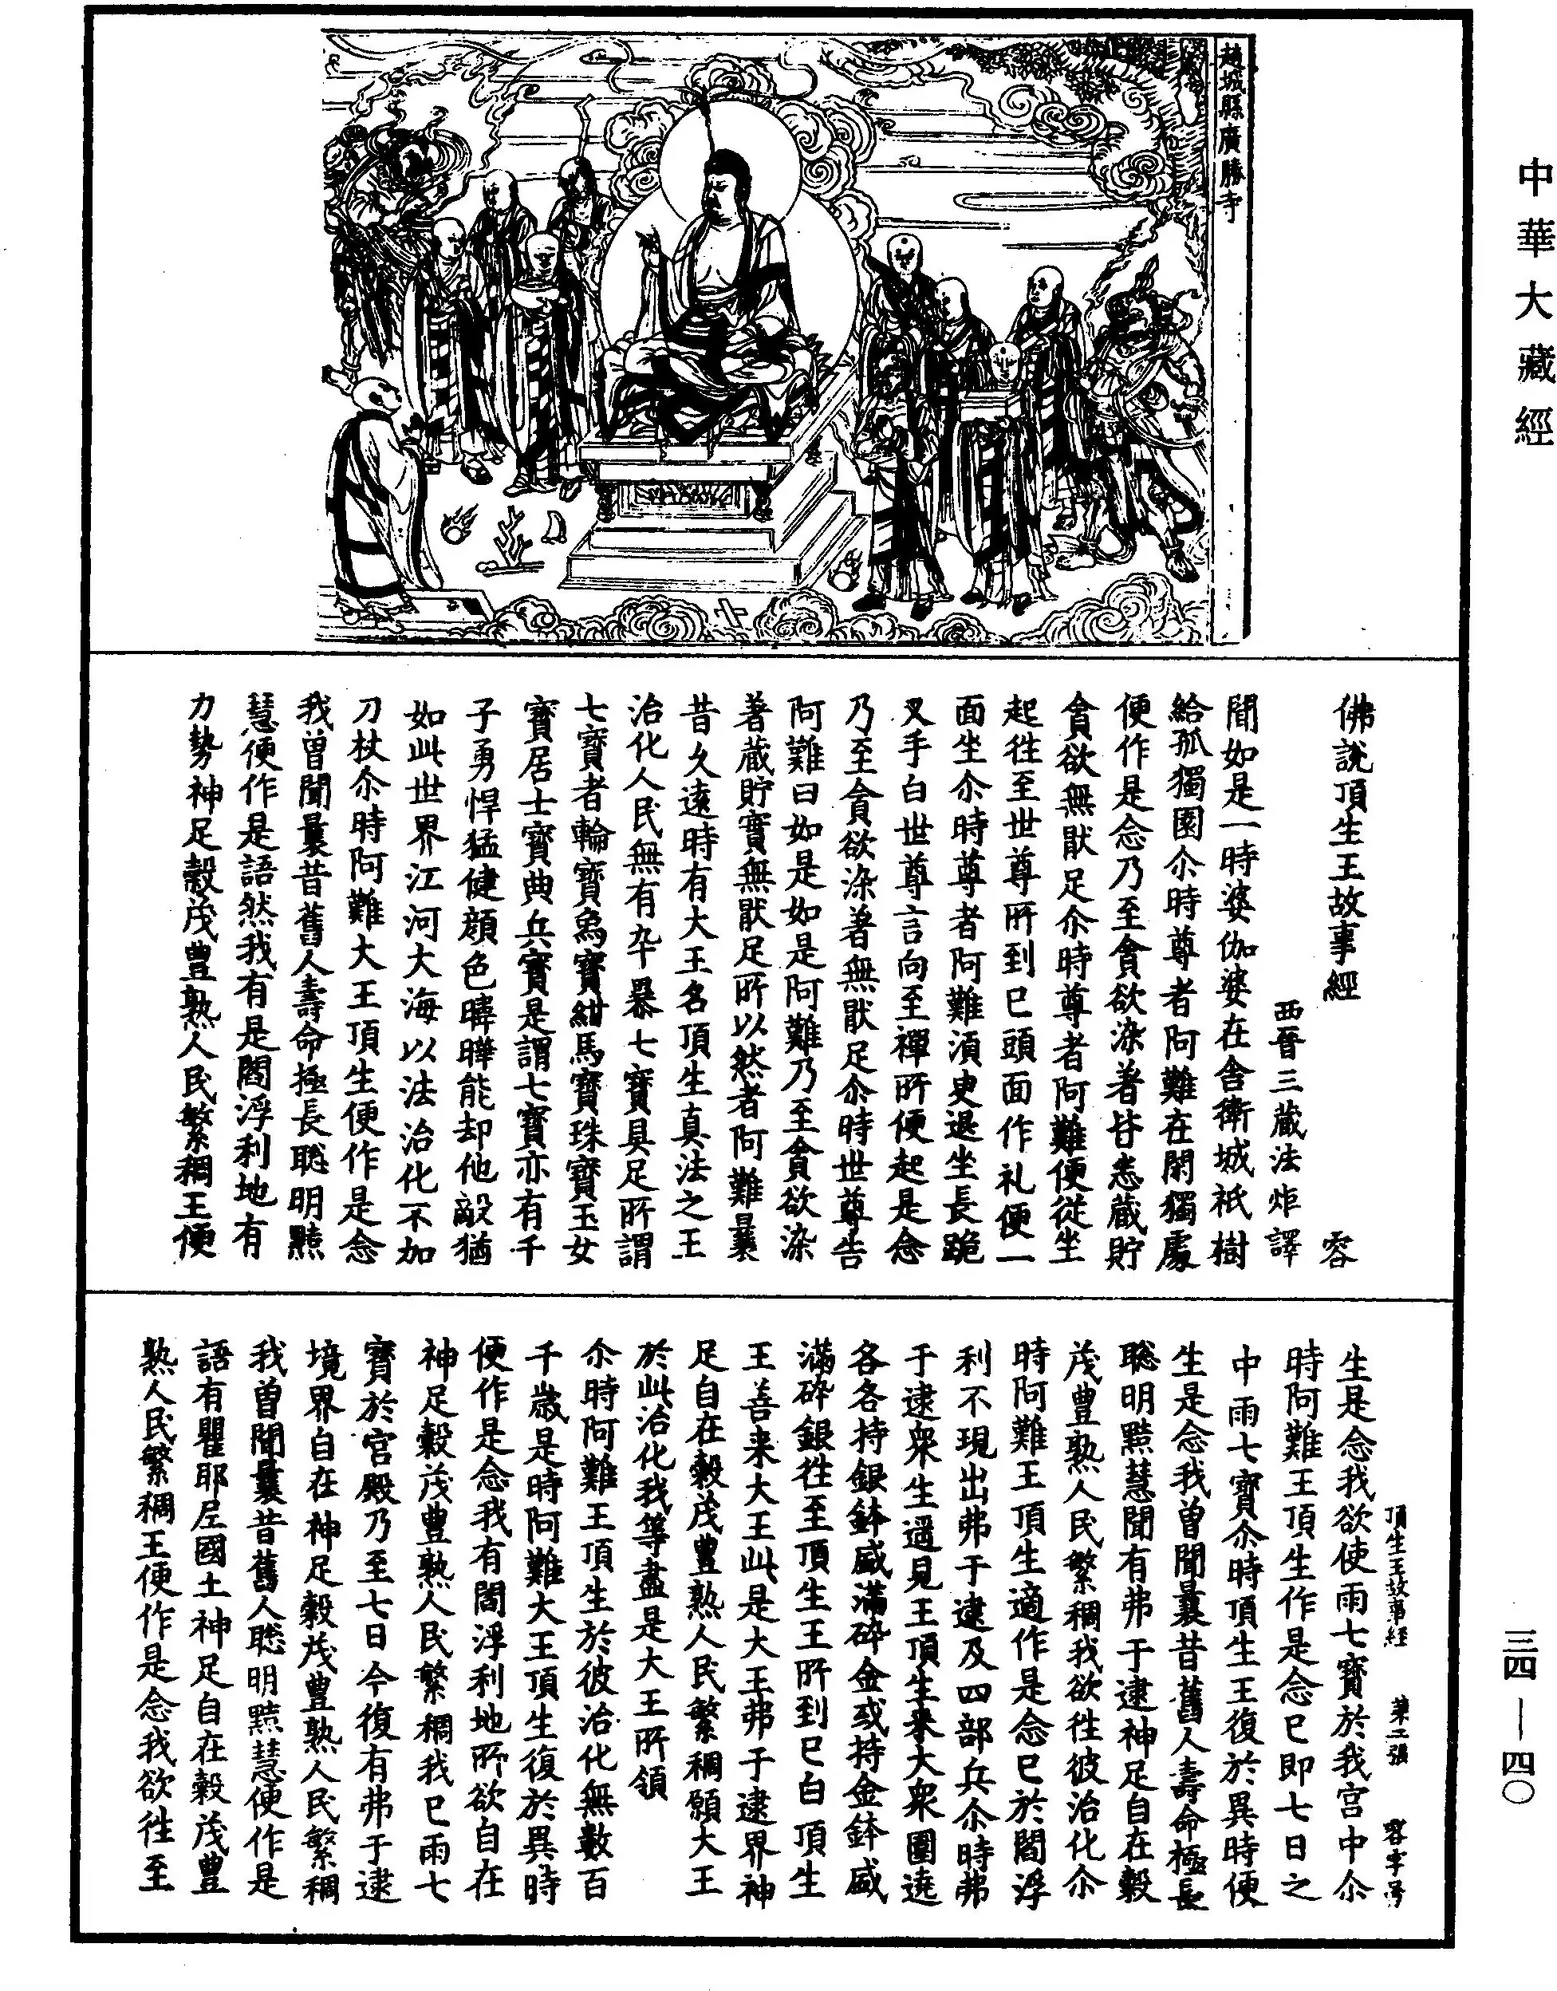 中華大藏經
三四—四〇
趙城縣廣勝寺
佛說頂生王故事經　容
西晉三藏法炬譯
聞如是一時婆伽婆在舍衛城祇樹
給孤獨園尒時尊者阿難在閑獨處
便作是念乃至貪欲染著甘恚藏貯
貪欲無猒足尒時尊者阿難便從坐
起徃至世尊所到已頭面作礼便一
面坐尒時尊者阿難須臾退坐長跪
叉手白世尊言向至禪所便起是念
乃至貪欲染著無猒足尒時世尊告
阿難曰如是如是阿難乃至貪欲染
著藏貯寶無猒足所以然者阿難曩
昔久遠時有大王名頂生真法之王
治化人民無有卒暴七寶具足所謂
七寶者輪寶烏寶紺馬寶珠寶玉女
寶居士寶典兵寶是謂七寶亦有千
子勇悍猛健顏色暐曄能却他敵猶
如此世界江河大海以法治化不加
刀杖尒時阿難大王頂生便作是念
我曾聞曩昔舊人壽命極長聡明黠
慧便作是語然我有是閻浮利地有
力勢神足穀茂豊熟人民繁稠王便
頂生王故事経　第二張　容字号
生是念我欲使雨七寶於我宮中尒
時阿難王頂生作是念已即七日之
中雨七寶尒時頂生王復於異時便
生是念我曾聞曩昔舊人壽命極長
聡明黠慧聞有弗于逮神足自在穀
茂豊熟人民繁稠我欲徃彼治化尒
時阿難王頂生適作是念已於閻浮
利不現出弗于逮及四部兵尒時弗
于逮衆生遥見王頂生来大衆圍遶
各各持銀鉢盛滿碎金或持金鉢盛
滿碎銀徃至頂生王所到已白頂生
王善来大王此是大王弗于逮界神
足自在穀茂豊熟人民繁稠願大王
於此治化我等盡是大王所領
尒時阿難王頂生於彼治化無數百
千歲是時阿難大王頂生復於異時
便作是念我有閻浮利地所欲自在
神足穀茂豊熟人民繁稠我已雨七
寶於宮殿乃至七日今復有弗于逮
境界自在神足穀茂豊熟人民繁稠
我曾聞曩昔舊人聡明黠慧便作是
語有瞿耶尼國土神足自在穀茂豊
熟人民繁稠王便作是念我欲徃至